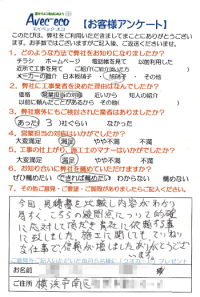 Avec eco 【お客様アンケート】
エイベック エコ
このたび、弊社をご利用いただきましてまことにありがとうござい
ます。お手数ではございますがご記入後、ご返送くださいませ。
1、どのような方法で弊社をお知りになりましたか?
チラシ ホームページ 電話帳を見て 以前利用した
近所で工事を見て ご紹介
メーカーの紹介 日本板硝子 旭硝子 その他
2、弊社に工事業者を決めた理由はなんでしたか?
価格 営業担当の対応 近いから 知人の紹介
以前に頼んだことがあるから その他
3、弊社意外にもご検討された業者はありましたか?
あった 3 社ぐらい なかった
4、営業担当の対応はいかがでしたか?
大変満足 満足 やや不満 不満
5、工事の仕上がり、施工士のマナーはいかがでしたか?
大変満足 満足 やや不満 不満
6、お知り合いに弊社を薦めていただけますか?
ぜひ薦めたい できれば薦めたい わからない 薦めない
7、その他ご意見・ご要望・ご質問がありましたらご記入ください
今回見積書を比較し内容がわかり
易すく、こちらの疑問点につ
に対応して頂だき貴社に依頼
致しました。施工に関して
安仕事で依頼 ありがとうござい
ます。
お名前 様
ご住所 横浜市南区